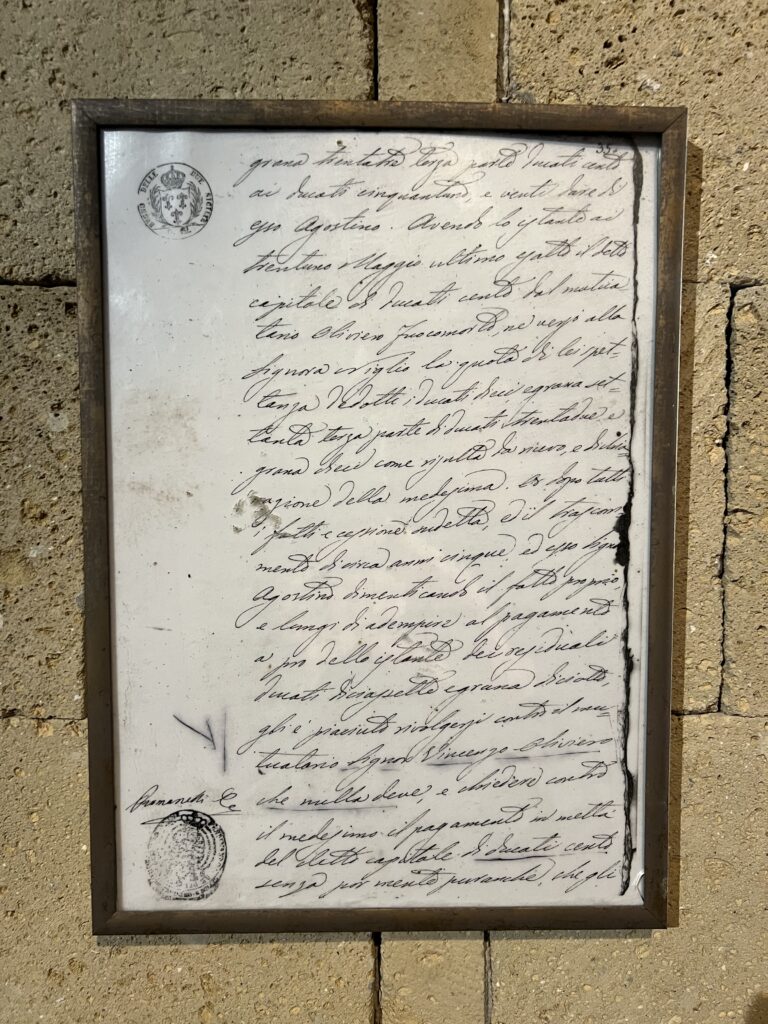 REGNO DELLE DUE SICILIE
grana trentatre terza parte ducati cento
ai ducati cinquantuno, e venti dare di
esso Agostino. Avendo lo istante ai
trentuno Maggio ultimo esatto il detto
capitale di ducati cento dal mutua
tario Oliviero Fuocomorto, ne versò alla
Signora la quota di lei spet-
tanza dedotti i ducati dieci e grana set-
tanta terza parte di ducati trentadue, e
grana dieci come risulta da ricevo, e
ragione della medesima. Or dopo tutti
i fatti e cessione sudetta, ed il trascorri
mento di circa anni cinque, ed esso Signor
Agostino dimenticando il fatto proprio,
e lungi di adempire al pagamento
a pro dello istante dei residuali
ducati diciassette e grana diciotto,
gli è piaciuto rivolgersi contro il mu-
tuatario Signor Vincenzo Oliviero
che nulla deve, e chiedere contro
il medesimo il pagamento in metà
del detto capitale di ducati cento
senza por mente puranche, che gli